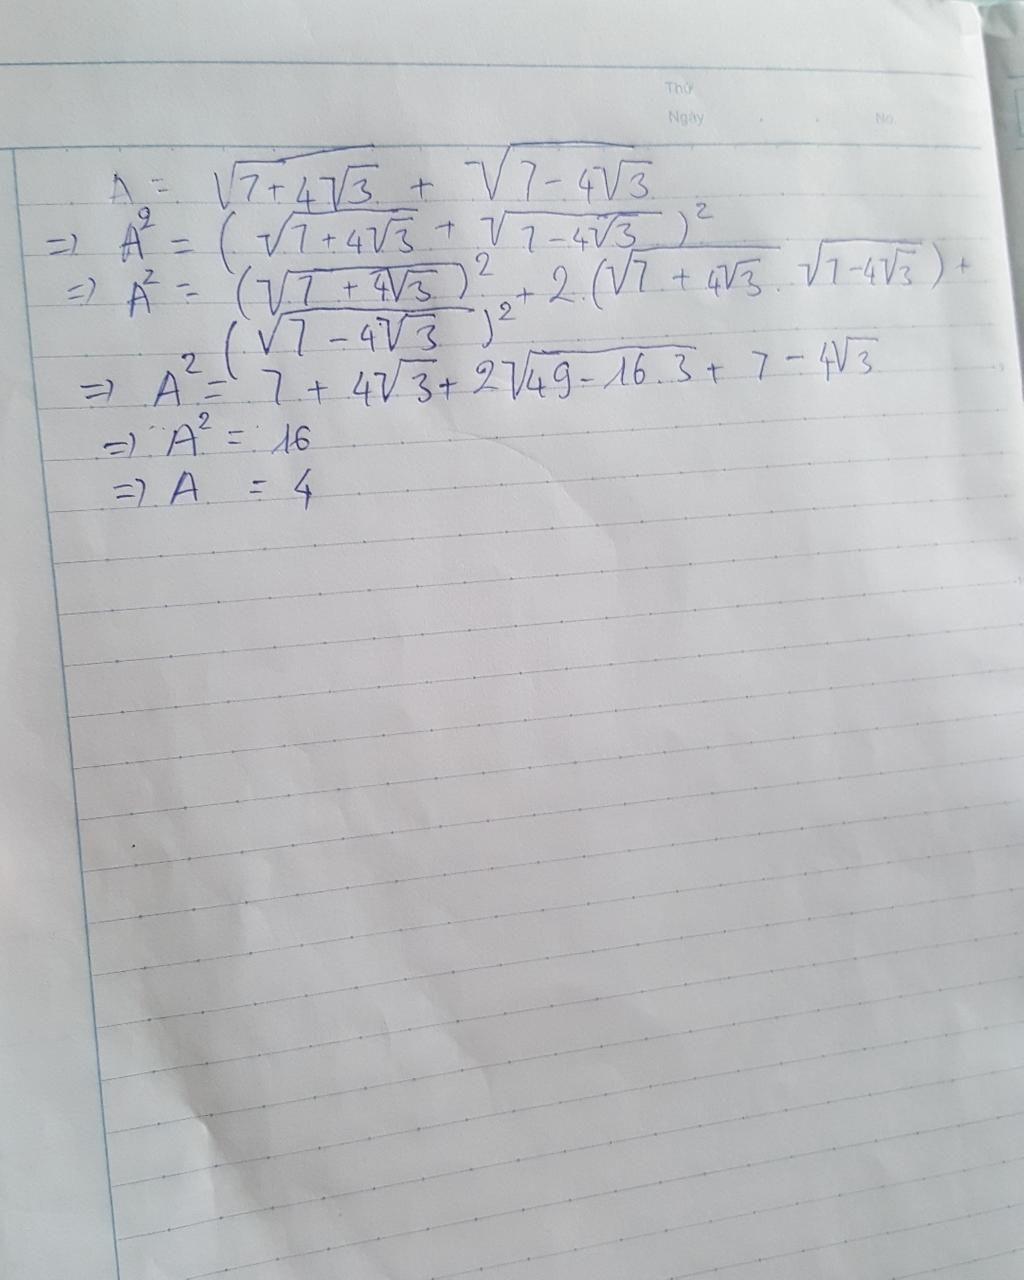 Thứ
Ngày . . No.
A = √(7+4√3) + √(7-4√3)
=> A² = (√(7+4√3) + √(7-4√3))²
=> A² = (√(7+4√3))² + 2.(√(7+4√3) . √(7-4√3)) +
(√(7-4√3))²
=> A² = 7 + 4√3 + 2√(49-16.3) + 7 - 4√3
=> A² = 16
=> A = 4